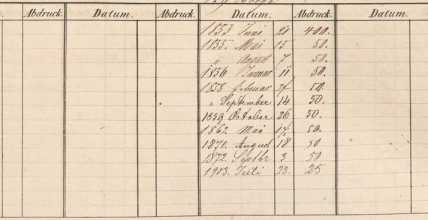 Abdruck. Datum. Abdruck. Datum. Abdruck. Datum.
1853 Juni 400.
1855. Mai 15 50.
" August 7 50.
1856 Januar 11 50.
1858. Februar 50.
" September 14 50.
1859. October 26 50.
1862. Mai 50.
1871. August 18 50
1872. Septbr 3 50
1903. Juli 23. 25